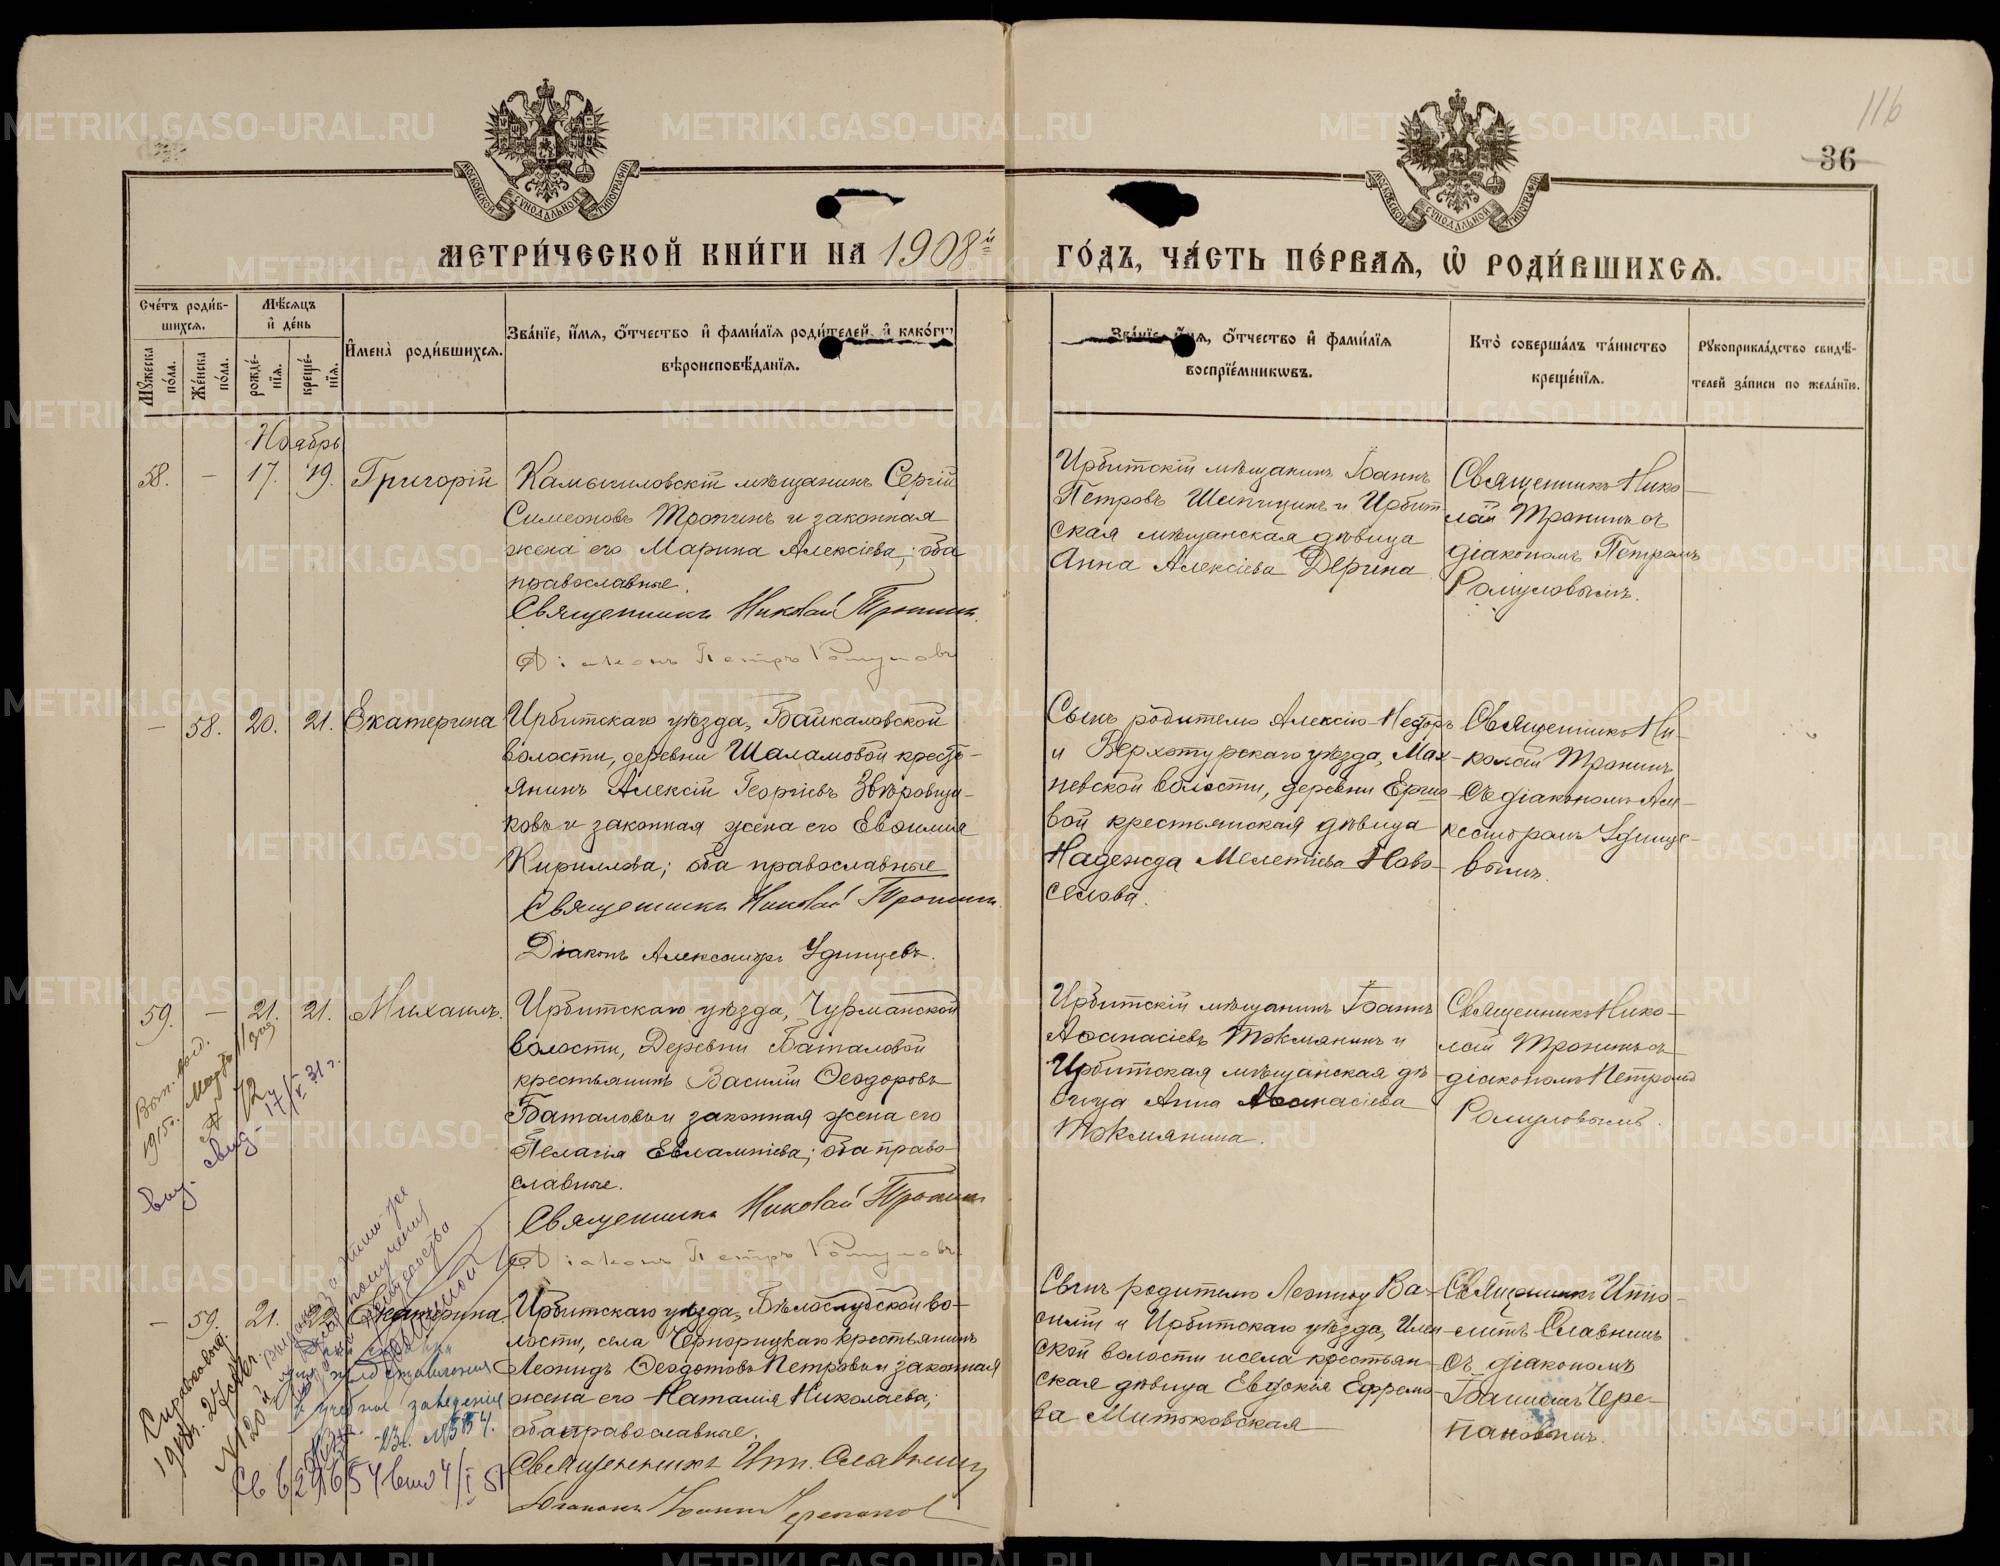 116
36
МЕТРИ́ЧЕСКОЙ КНИ́ГИ НА 1908й
ГО́ДЪ, ЧА́СТЬ ПЕ́РВАЯ, Ѡ РОДИ́ВШИХСЯ.
Сче́тъ роди́в-
шихся.
Мѣ́сяцъ
и де́нь
Мꙋжеска по́ла.
Же́нска по́ла.
рожде́-
нїя.
креще́-
нїя.
Имена̀ роди́вшихся.
Зва́нїе, и́мя, ѻ́тчество и фами́лїя роди́телей, и како́гѡ
вѣроисповѣ́данїя.
Зва́нїе, и́мя, ѻ́тчество и фами́лїя
воспрїе́мникѡвъ.
Кто̀ соверша́лъ та́инство
креще́нїя.
Рꙋкоприкла́дство свидѣ́-
телей за́писи по жела́нїю.
Ноябрь
58. — 17. 19. Григорій
Камышловскій мѣщанинъ Сергій
Симеоновъ Тропинъ и законная
жена его Марина Алексіева; оба
православные.
Священникъ Николай Тропинъ.
Діаконъ Петръ Ромуловъ
Ирбитскій мѣщанинъ Іоаннъ
Петровъ Шипицинъ и Ирбит-
ская мѣщанская дѣвица
Анна Алексіева Дерина
Священникъ Нико-
лай Тропинъ съ
діакономъ Петромъ
Ромуловымъ.
— 58. 20. 21. Екатерина
Ирбитскаго уѣзда, Байкаловской
волости, деревни Шаламовой кресть-
янинъ Алексій Георгіевъ Звѣровщи-
ковъ и законная жена его Евѳимія
Кириллова; оба православные
Священникъ Николай Тропинъ.
Діаконъ Александръ Удинцевъ.
Сынъ родителю Алексію Несторъ
и Верхотурскаго уѣзда, Мах-
невской волости, деревни Ерши-
вой крестьянская дѣвица
Надежда Мелетіева Ново-
селова.
Священникъ Ни-
колай Тропинъ
съ діакономъ Але-
ксандромъ Удинце-
вымъ.
59. — 21. 21. Михаилъ.
Ирбитскаго уѣзда, Чурманской
волости, Деревни Баталовой
крестьянинъ Василій Ѳеодоровъ
Баталовъ и законная жена его
Пелагія Евлампіева; оба право-
славные.
Священникъ Николай Тропинъ
Діаконъ Петръ Ромуловъ
Ирбитскій мѣщанинъ Іоаннъ
Аѳанасіевъ Тюкмянинъ и
Ирбитская мѣщанская дѣ-
вица Анна Аѳанасіева
Тюкмянина.
Священникъ Нико-
лай Тропинъ съ
діакономъ Петромъ
Ромуловымъ.
1915г. Марта 11
№ 72
выд. свид. 17/V 31 г.
— 59. 21. 22. Екатерина
Ирбитскаго уѣзда, Бѣлослудской во-
лости, села Чернорицкаго крестьянинъ
Леонидъ Ѳеодотовъ Петровъ и законная
жена его Наталія Николаева;
оба православные.
Священникъ Ип. Славнинъ
Діаконъ Іоаннъ Черепановъ
Сынъ родителю Леониду Ва-
силій и Ирбитскаго уѣзда, Илен-
ской волости и села крестьян-
ская дѣвица Евдокія Ефремо-
ва Митьковская
Священникъ Иппо-
литъ Славнинъ
съ діакономъ
Іоанномъ Чере-
пановымъ.
учебное заведеніе
23г. №554.